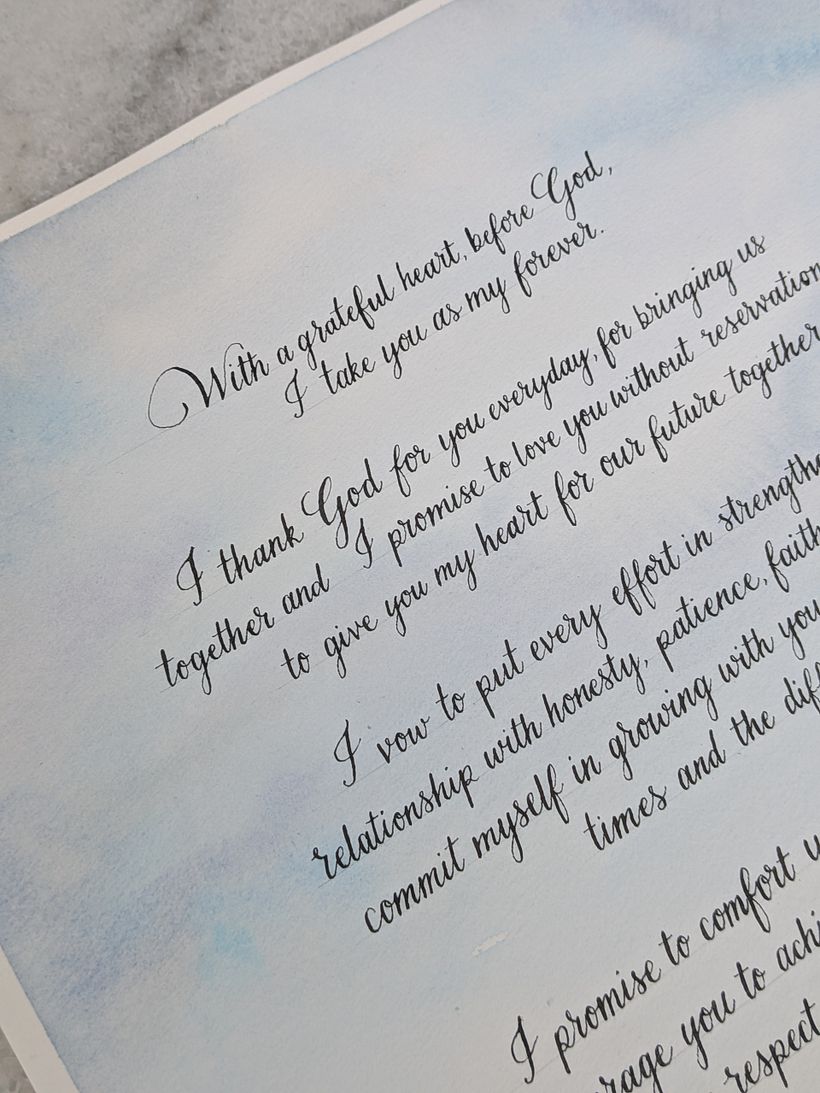 With a grateful heart, before God,
I take you as my forever.
I thank God for you everyday, for bringing us
together and I promise to love you without reservation
to give you my heart for our future together
I vow to put every effort in
relationship with honesty, patience, faith
commit myself in growing with you
times and the
I promise to comfort
you to
respect